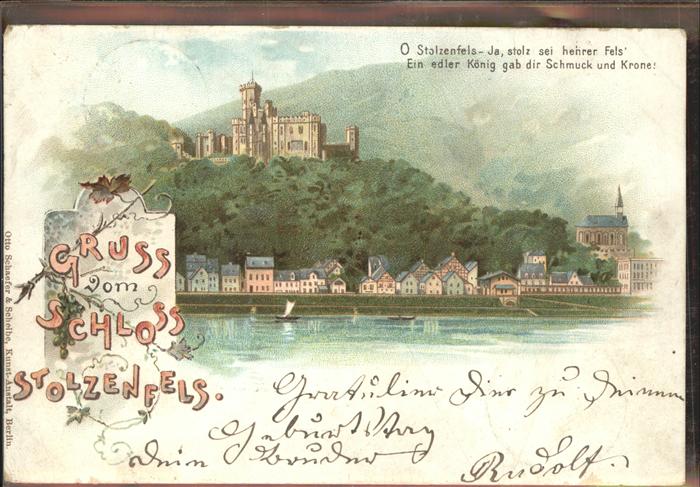 O Stolzenfels - Ja, stolz sei hehrer Fels'
Ein edler König gab dir Schmuck und Krone!
GRUSS
vom
SCHLOSS
STOLZENFELS.
Otto Schaefer & Scheibe, Kunst-Anstalt, Berlin.
Gratulier Dier zu deinem
Geburtstag
dein Bruder
Rudolf.